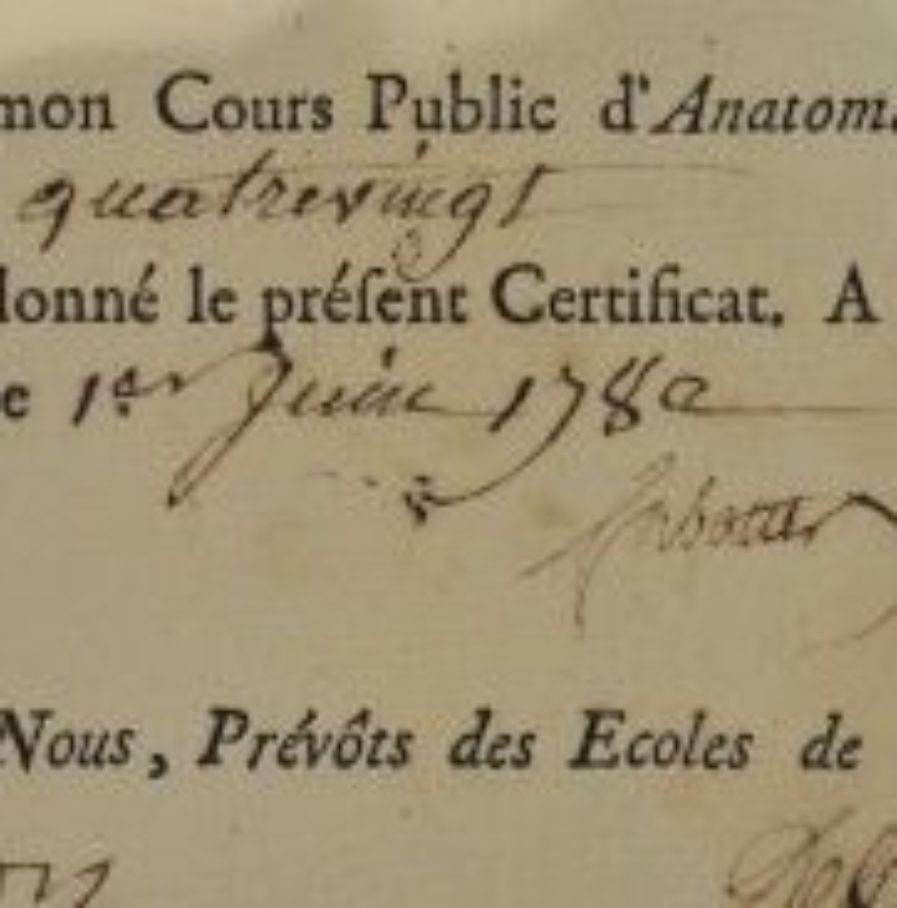 mon Cours Public d'Anatom.
quatrevingt
donné le préſent Certificat. A
e 1er Juin 1782
Nous, Prévôts des Ecoles de